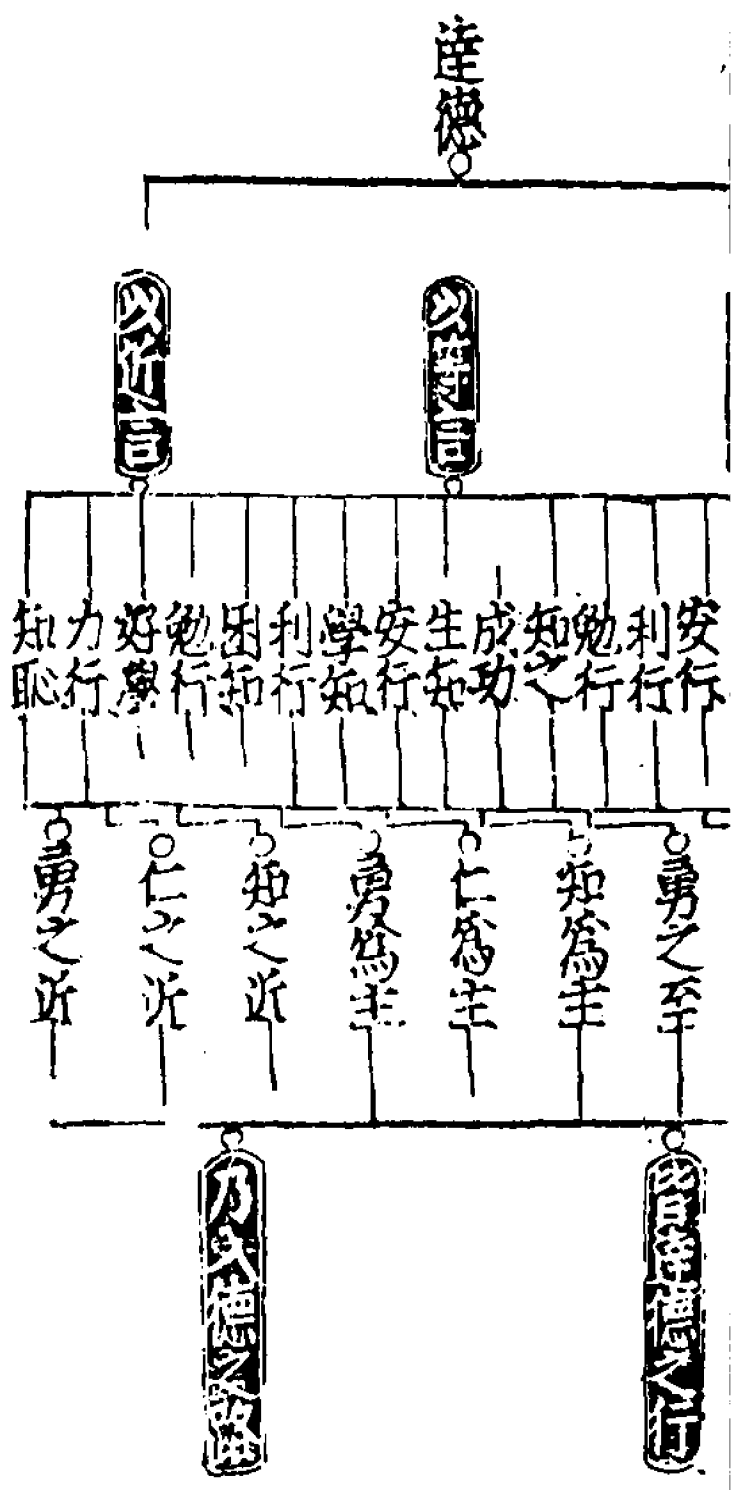 達德
以等之言
以近之言
安行
利行
勉行
知之
成功
生知
安行
學知
利行
困知
勉行
好學
力行
知恥
勇之至
知為主
仁為主
勇為主
知之近
仁之近
勇之近
皆達德之行
乃入德之路